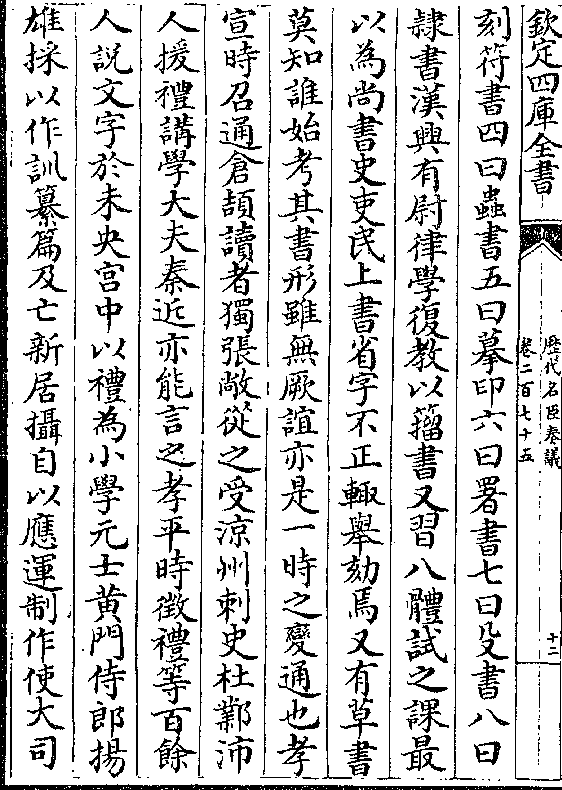 欽定四庫全書
歴代名臣奏議
卷二百七十五
十二
刻符書四曰蟲書五曰摹印六曰署書七曰殳書八曰
隷書漢興有尉律學復教以籀書又習八體試之課最
以為尚書史吏民上書省字不正輙舉劾焉又有草書
莫知誰始考其書形雖無厥誼亦是一時之變通也孝
宣時召通倉頡讀者獨張敞從之受涼州刺史杜鄴沛
人援禮講學大夫秦近亦能言之孝平時徵禮等百餘
人説文字於未央宫中以禮為小學元士黄門侍郎揚
雄採以作訓纂篇及亡新居攝自以應運制作使大司